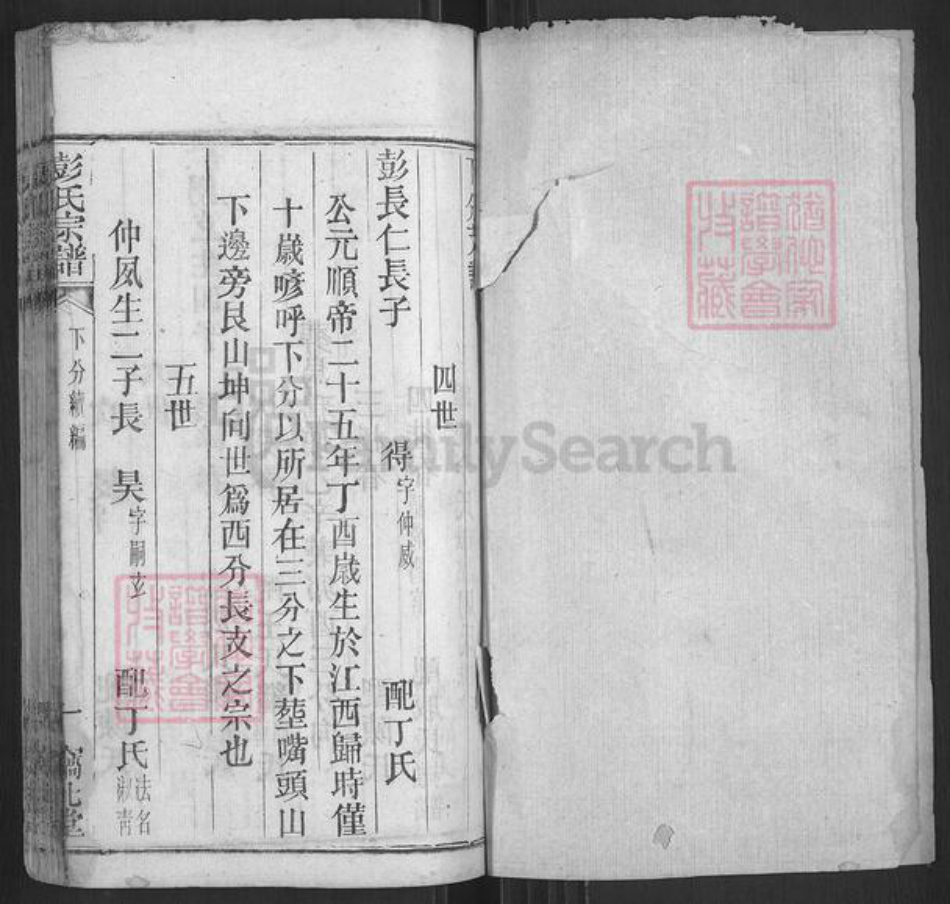 四世
彭長仁長子　得字仲威　配丁氏
公元順帝二十五年丁酉歲生於江西歸時僅
十歲喀呼下分以所居在三分之下塟嘴頭山
下邊旁艮山坤向世爲西分長支之宗也
五世
仲威生二子長　昊字嗣立　配丁氏法名淑靑
彭氏宗譜
下分續編
一
譜學會
特藏
FamilySearch